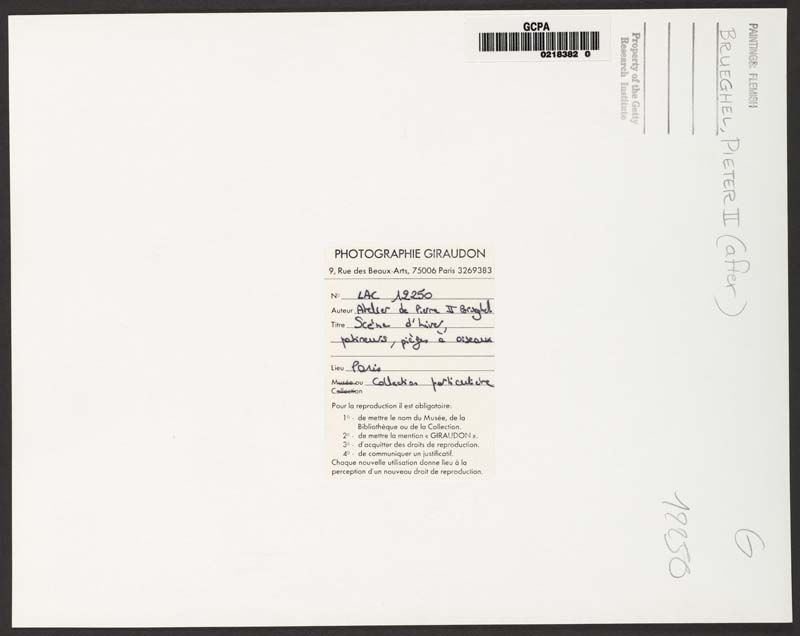 GCPA
0218382 0
Property of the Getty
Research Institute
PAINTINGS: FLEMISH
BRUEGHEL, PIETER II (after)
PHOTOGRAPHIE GIRAUDON
9, Rue des Beaux-Arts, 75006 Paris 3269383
N° LAC 12250
Auteur Atelier de Pierre II Brueghel
Titre Scène d'hiver,
patineurs, pièges à oiseaux
Lieu Paris
Musée ou Collection particulière
Collection
Pour la reproduction il est obligatoire:
1° - de mettre le nom du Musée, de la
Bibliothèque ou de la Collection.
2° - de mettre la mention « GIRAUDON ».
3° - d'acquitter des droits de reproduction.
4° - de communiquer un justificatif.
Chaque nouvelle utilisation donne lieu à la
perception d'un nouveau droit de reproduction.
G